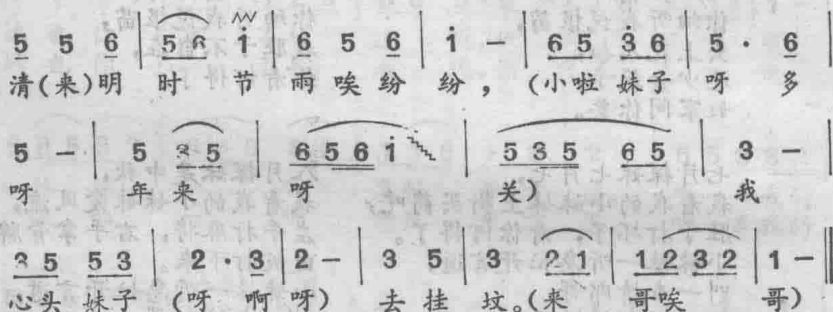 5 5 6 | 5 6 i | 6 5 6 | i – | 6 5 3 6 | 5 · 6 |
清(来)明 时 节 雨 唉 纷 纷, (小啦 妹子 呀 多
5 – | 5 3 5 | 6 5 6 i | 5 3 5 6 5 | 3 – |
呀 年 来 呀 关) 我
3 5 5 3 | 2 · 3 | 2 – | 3 5 3 | 2 1 | 1 2 3 2 | 1 – ‖
心头 妹子 (呀 啊 呀) 去 挂 坟。(来 哥唉 哥)